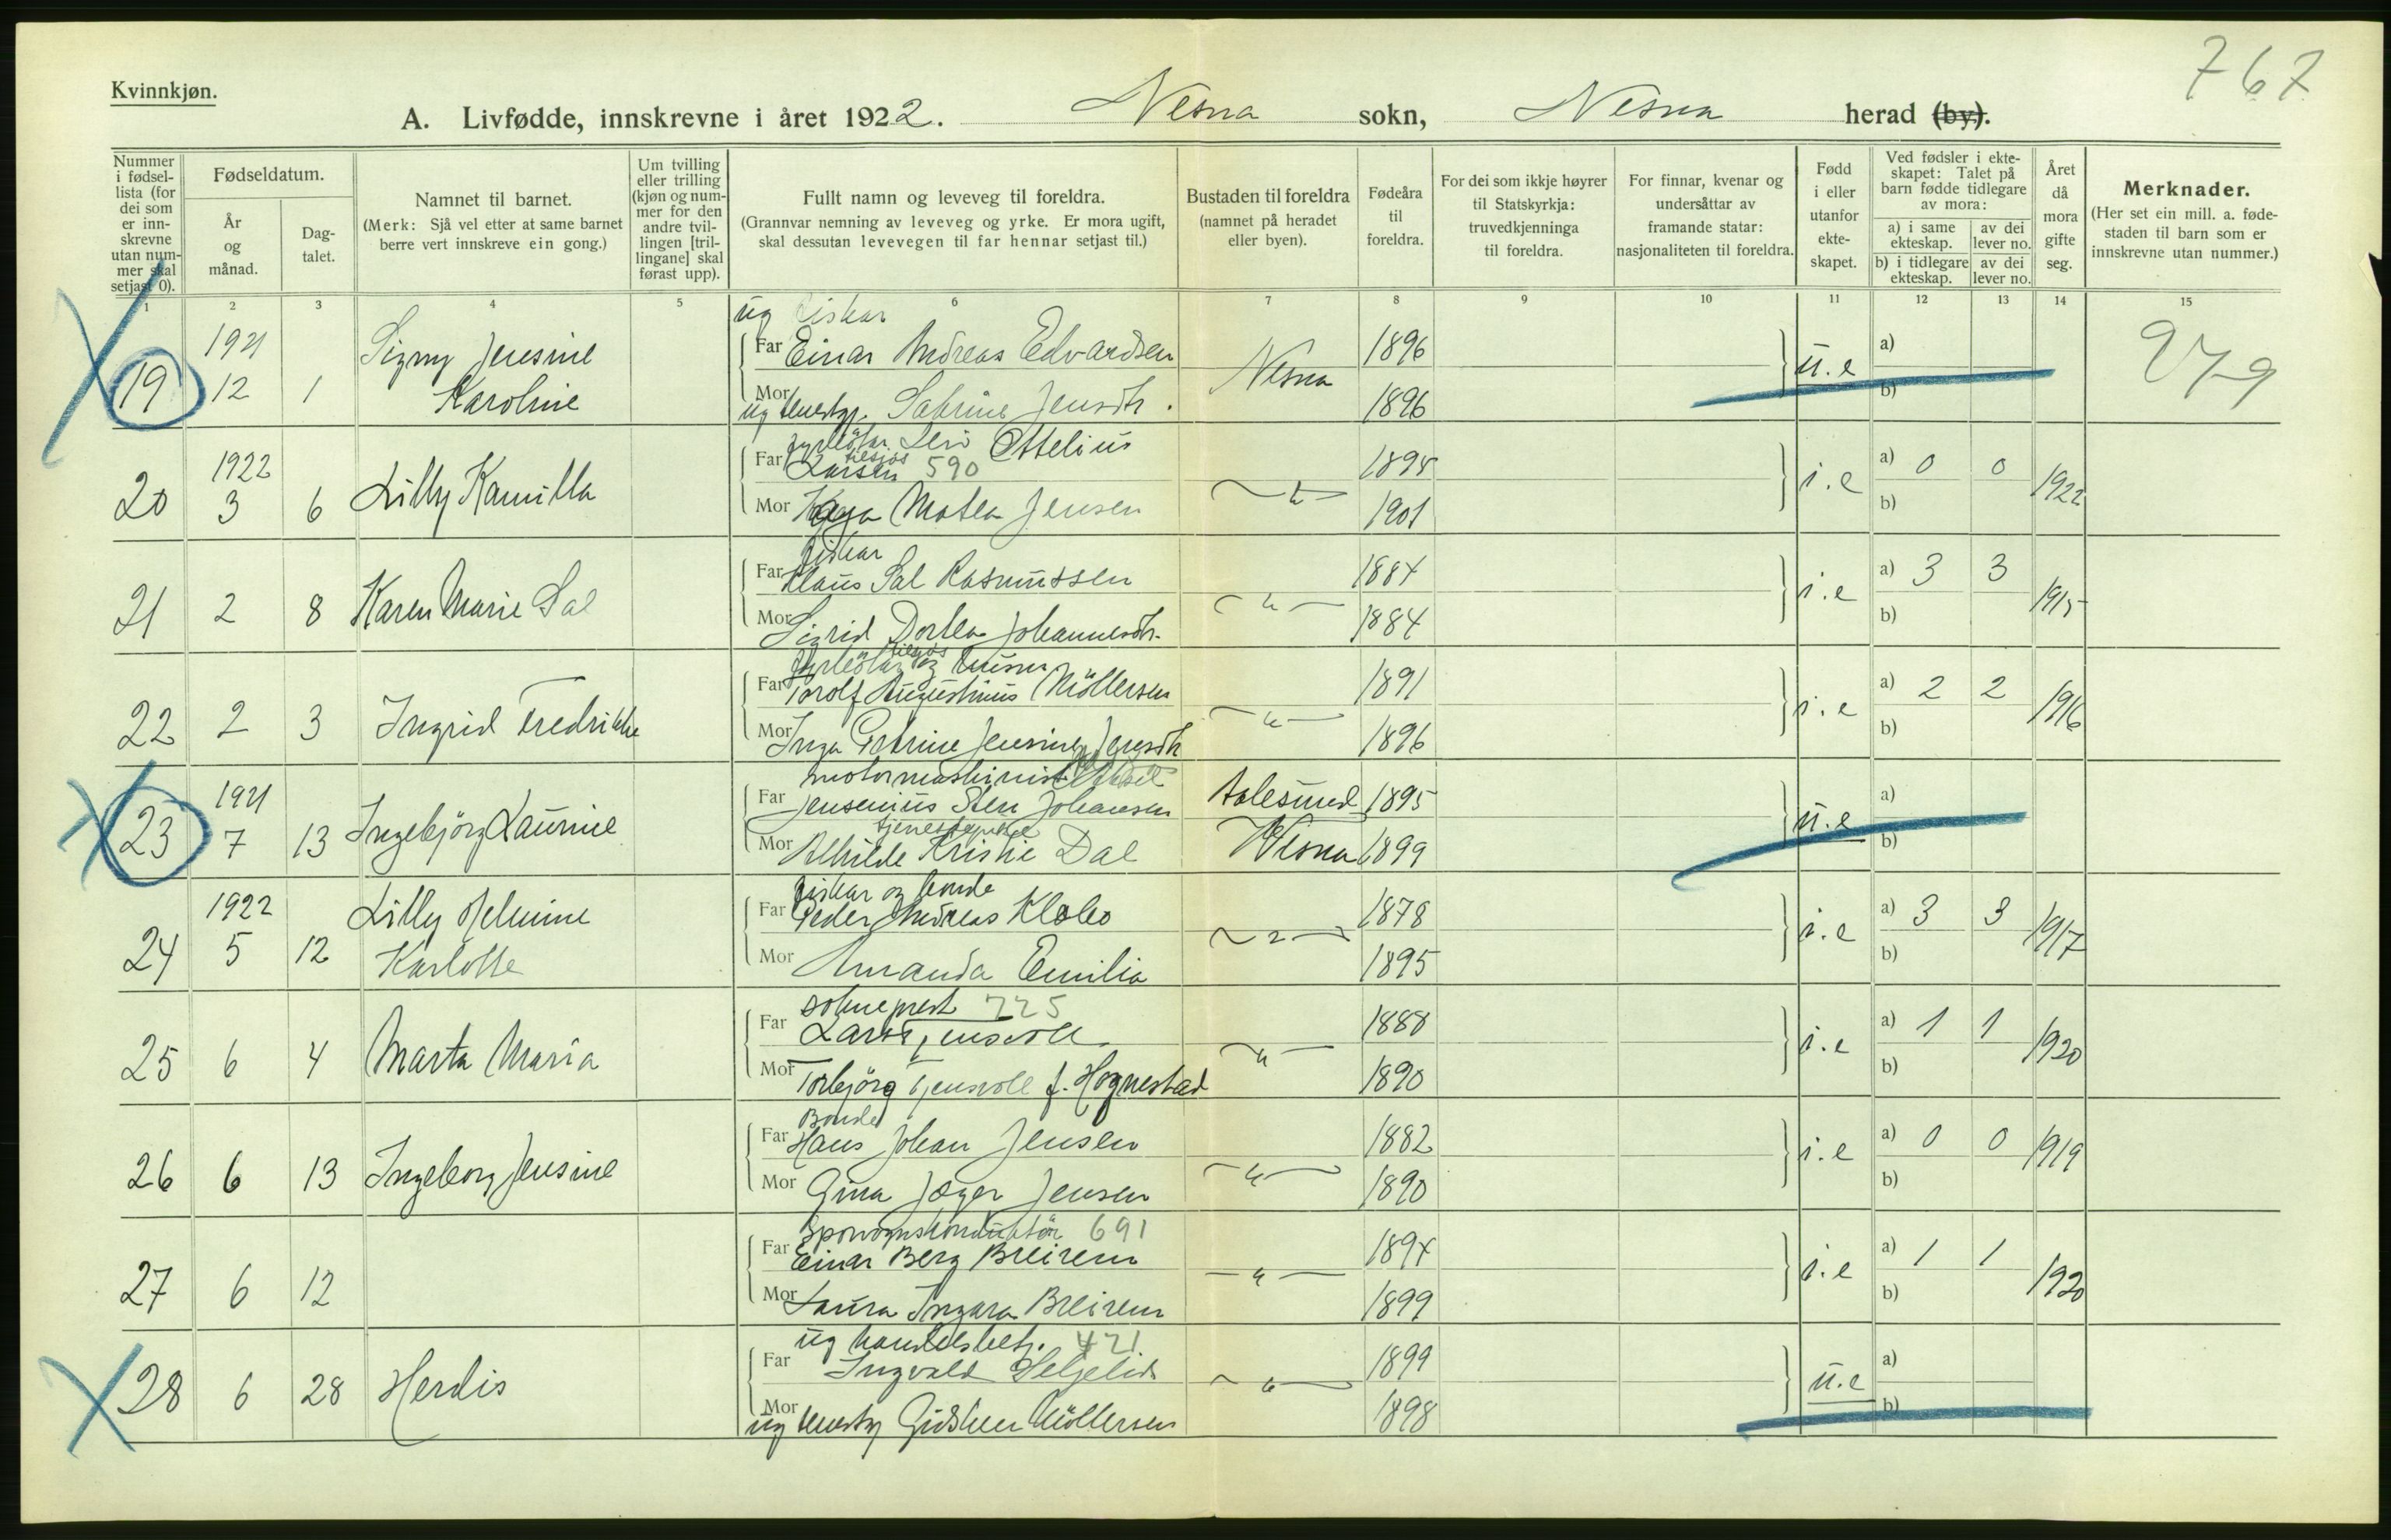 767
Kvinnkjøn.
A. Livfødde, innskrevne i året 1922. Nesna sokn, Nesna herad (by).
Nummer i fødsel-lista (for dei som er inn-skrevne utan num-mer skal setjast 0).
Fødseldatum.
År og månad.
Dag-talet.
Namnet til barnet.
(Merk: Sjå vel etter at same barnet berre vert innskreve ein gong.)
Um tvilling eller trilling (kjøn og num-mer for den andre tvil-lingen [tril-lingane] skal førast upp).
Fullt namn og leveveg til foreldra.
(Grannvar nemning av leveveg og yrke. Er mora ugift, skal dessutan levevegen til far hennar setjast til.)
Bustaden til foreldra (namnet på heradet eller byen).
Fødeåra til foreldra.
For dei som ikkje høyrer til Statskyrkja: truvedkjenninga til foreldra.
For finnar, kvenar og undersåttar av framande statar: nasjonaliteten til foreldra.
Fødd i eller utanfor ekte-skapet.
Ved fødsler i ekte-skapet: Talet på barn fødde tidlegare av mora:
a) i same ekteskap.
av dei lever no.
b) i tidlegare ekteskap.
av dei lever no.
Året då mora gifte seg.
Merknader.
(Her set ein mill. a. føde-staden til barn som er innskrevne utan nummer.)
1 2 3 4 5 6 7 8 9 10 11 12 13 14 15
ug fiskar
19 1921 12 1 Signy Jensine Karoline
Far Einar Andreas Edvardsen Nesna 1896 u.e a)
Mor ug tenestgj. Sabrine Jensdtr. 1896 b)
20 1922 3 6 Lilly Kamilla
Far Ottelius Larsen 590 — " — 1898 i.e a) 0 0 1922
Mor Kaja Matea Jensen 1901 b)
fiskar
21 2 8 Karen Marie Sal
Far Klaus Sal Rasmussen — " — 1884 i.e a) 3 3 1915
Mor Sigrid Dortea Johannesdtr. 1884 b)
22 2 3 Ingrid Fredrikke
Far Torolf Augustinus Möllersen — " — 1891 i.e a) 2 2 1916
Mor Inga Petrine Jensine Jensdtr 1896 b)
motormaskinist
23 1921 7 13 Ingebjörg Laurine
Far Jensenius Sten Johansen Aalesund 1895 u.e a)
tjenestepike
Mor Alhilde Kristie Dal Nesna 1899 b)
fiskar og bonde
24 1922 5 12 Lilly Helmine Karlotte
Far Peder Andreas Klebo — " — 1878 i.e a) 3 3 1917
Mor Amanda Emilia 1895 b)
sokneprest 725
25 6 4 Marta Maria
Far Lars Tjensvoll — " — 1888 i.e a) 1 1 1920
Mor Torbjörg Tjensvoll f. Hognestad 1890 b)
Bonde
26 6 13 Ingeborg Jensine
Far Hans Johan Jensen — " — 1882 i.e a) 0 0 1919
Mor Gina Jæger Jensen 1890 b)
Sporvognskonduktör 691
27 6 12
Far Einar Berg Breirem — " — 1894 i.e a) 1 1 1920
Mor Laura Ingara Breirem 1899 b)
ug handelsbetj. 421
28 6 28 Herdis
Far Ingvald Seljelid — " — 1899 u.e a)
Mor ug tenestgj Gudrun Möllersen 1898 b)